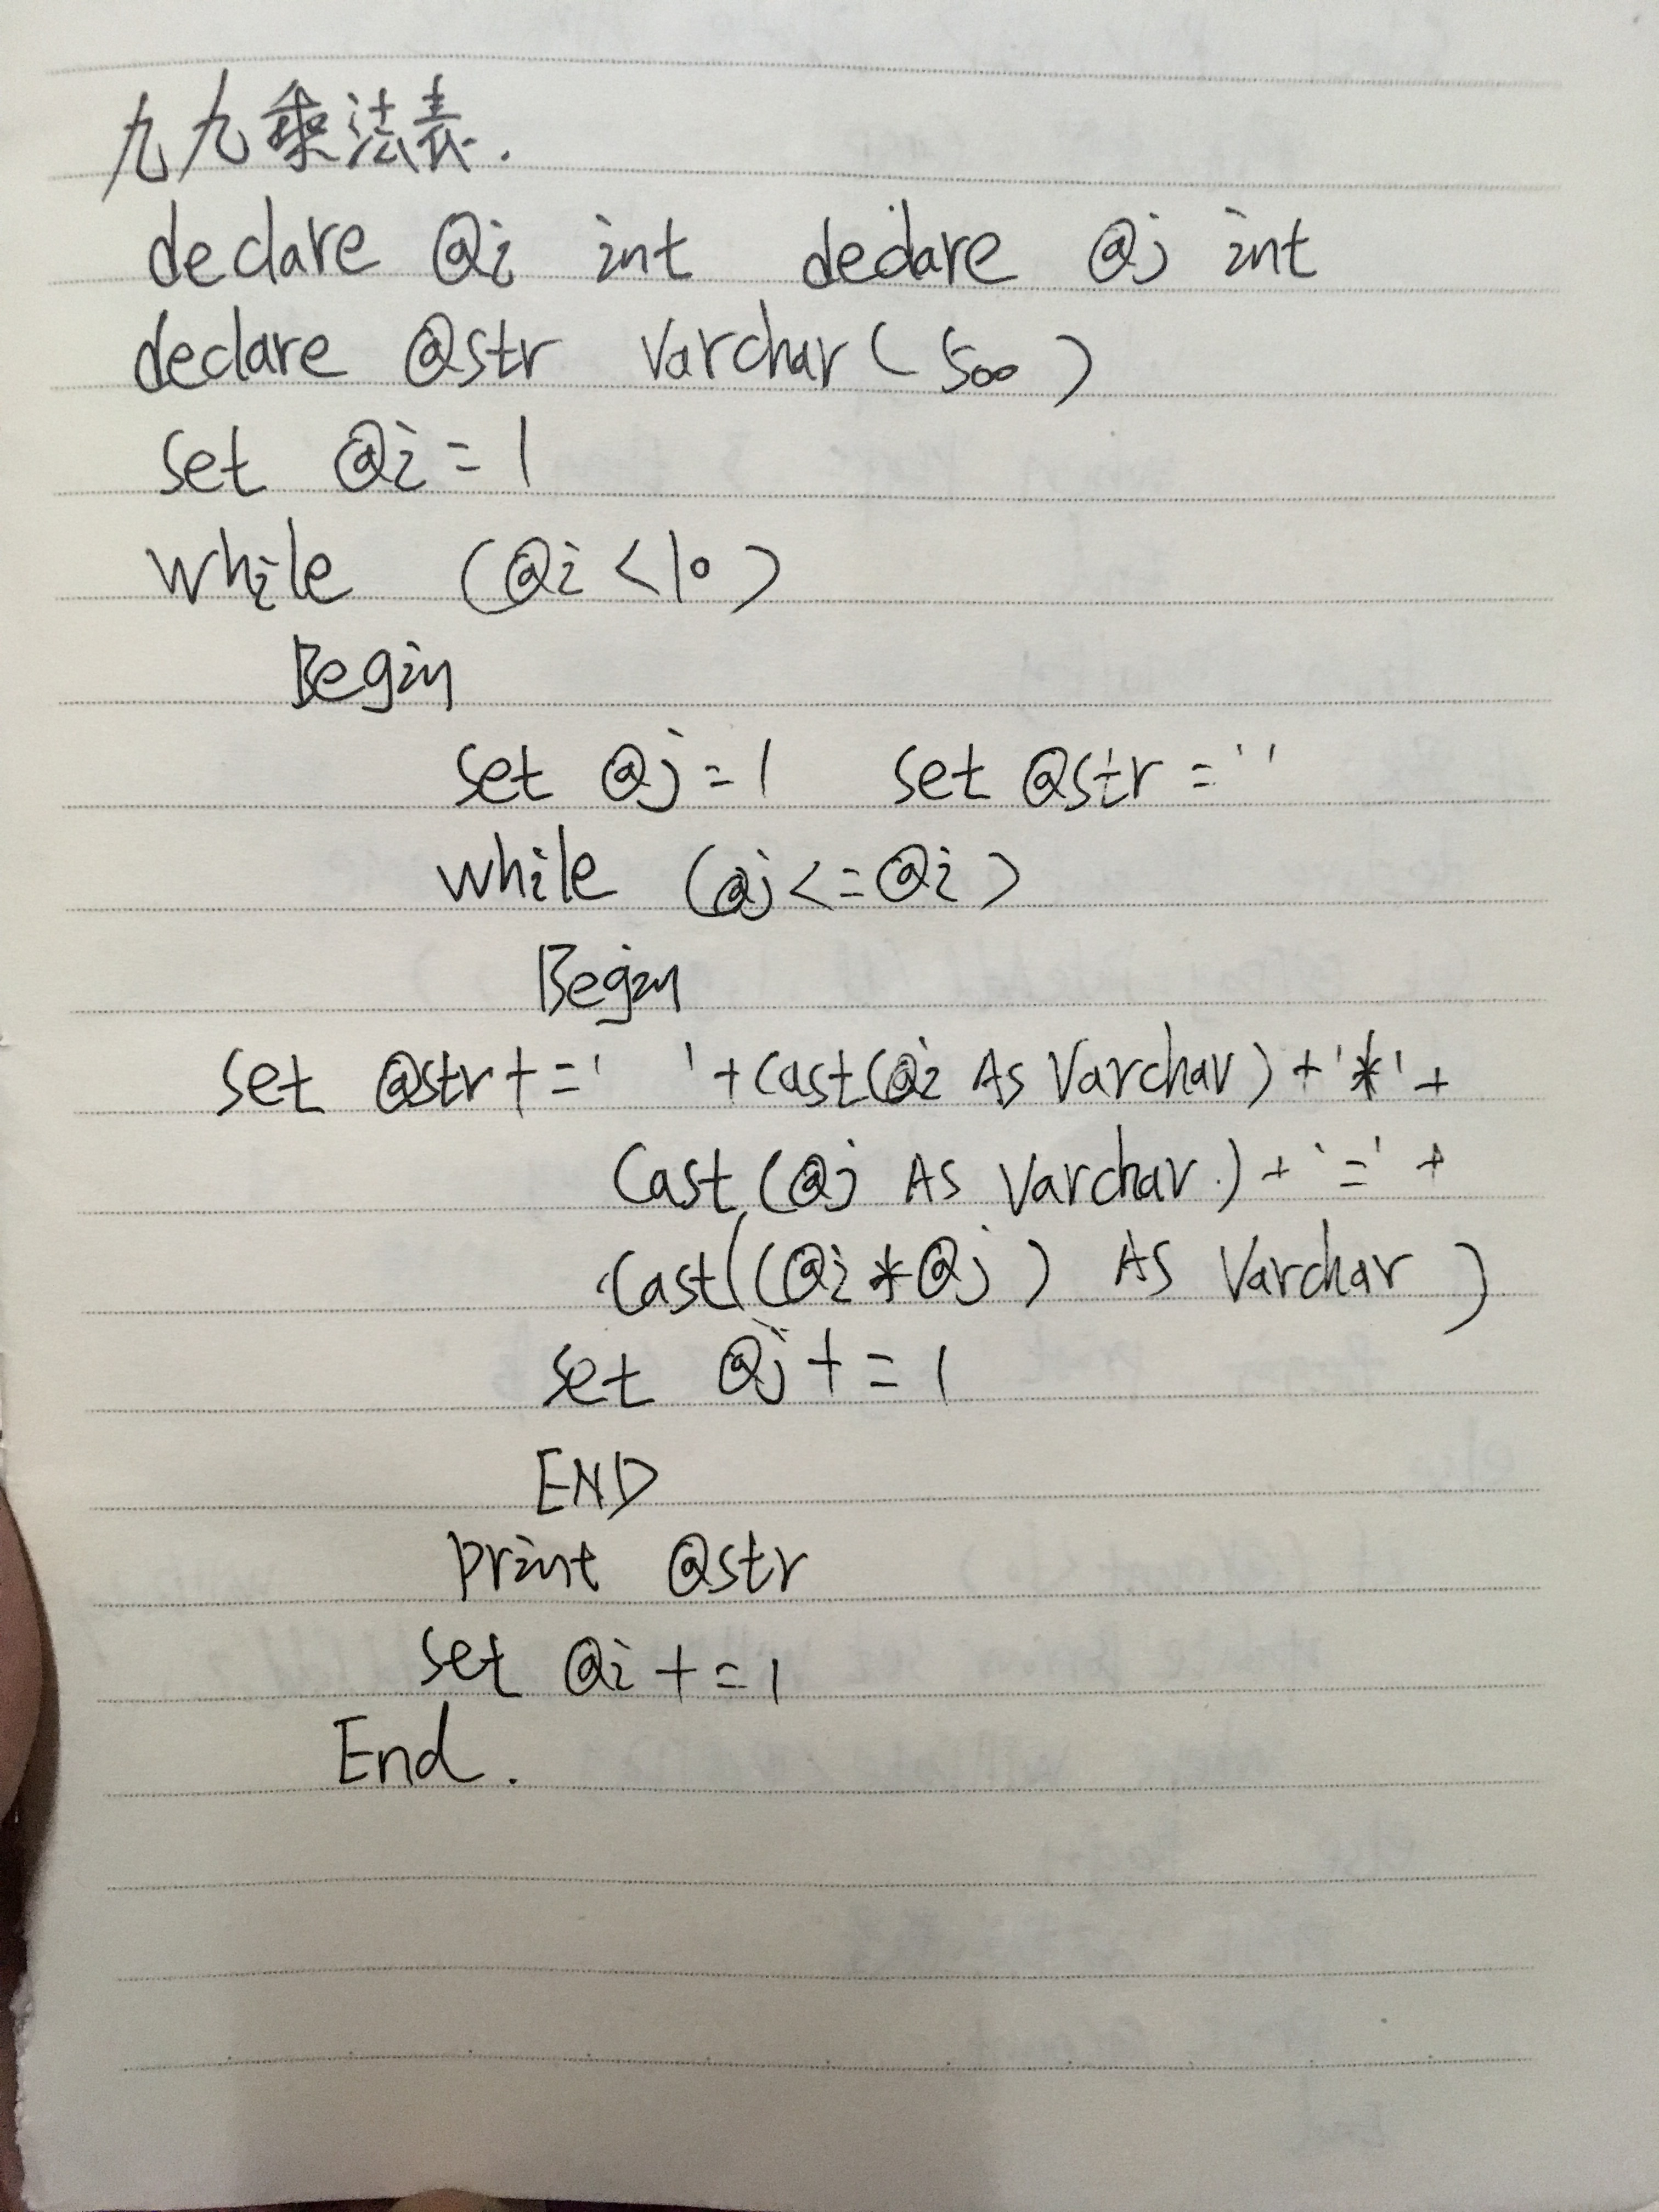 九九乘法表.
declare @i int declare @j int
declare @str varchar(500)
set @i=1
while (@i<10)
Begin
set @j=1 set @str=''
while (@j<=@i)
Begin
set @str+=' '+Cast(@i As Varchar)+'*'+
Cast(@j As Varchar)+'='+
Cast((@i*@j) As Varchar)
set @j+=1
END
print @str
set @i+=1
End.